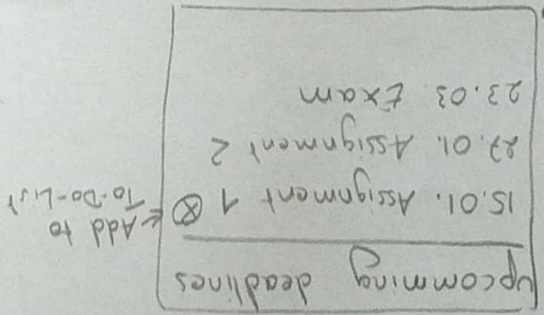 Upcomming deadlines
15.01. Assignment 1 ⊗ ← Add to
To-Do-List
27.01. Assignment 2
23.03. Exam